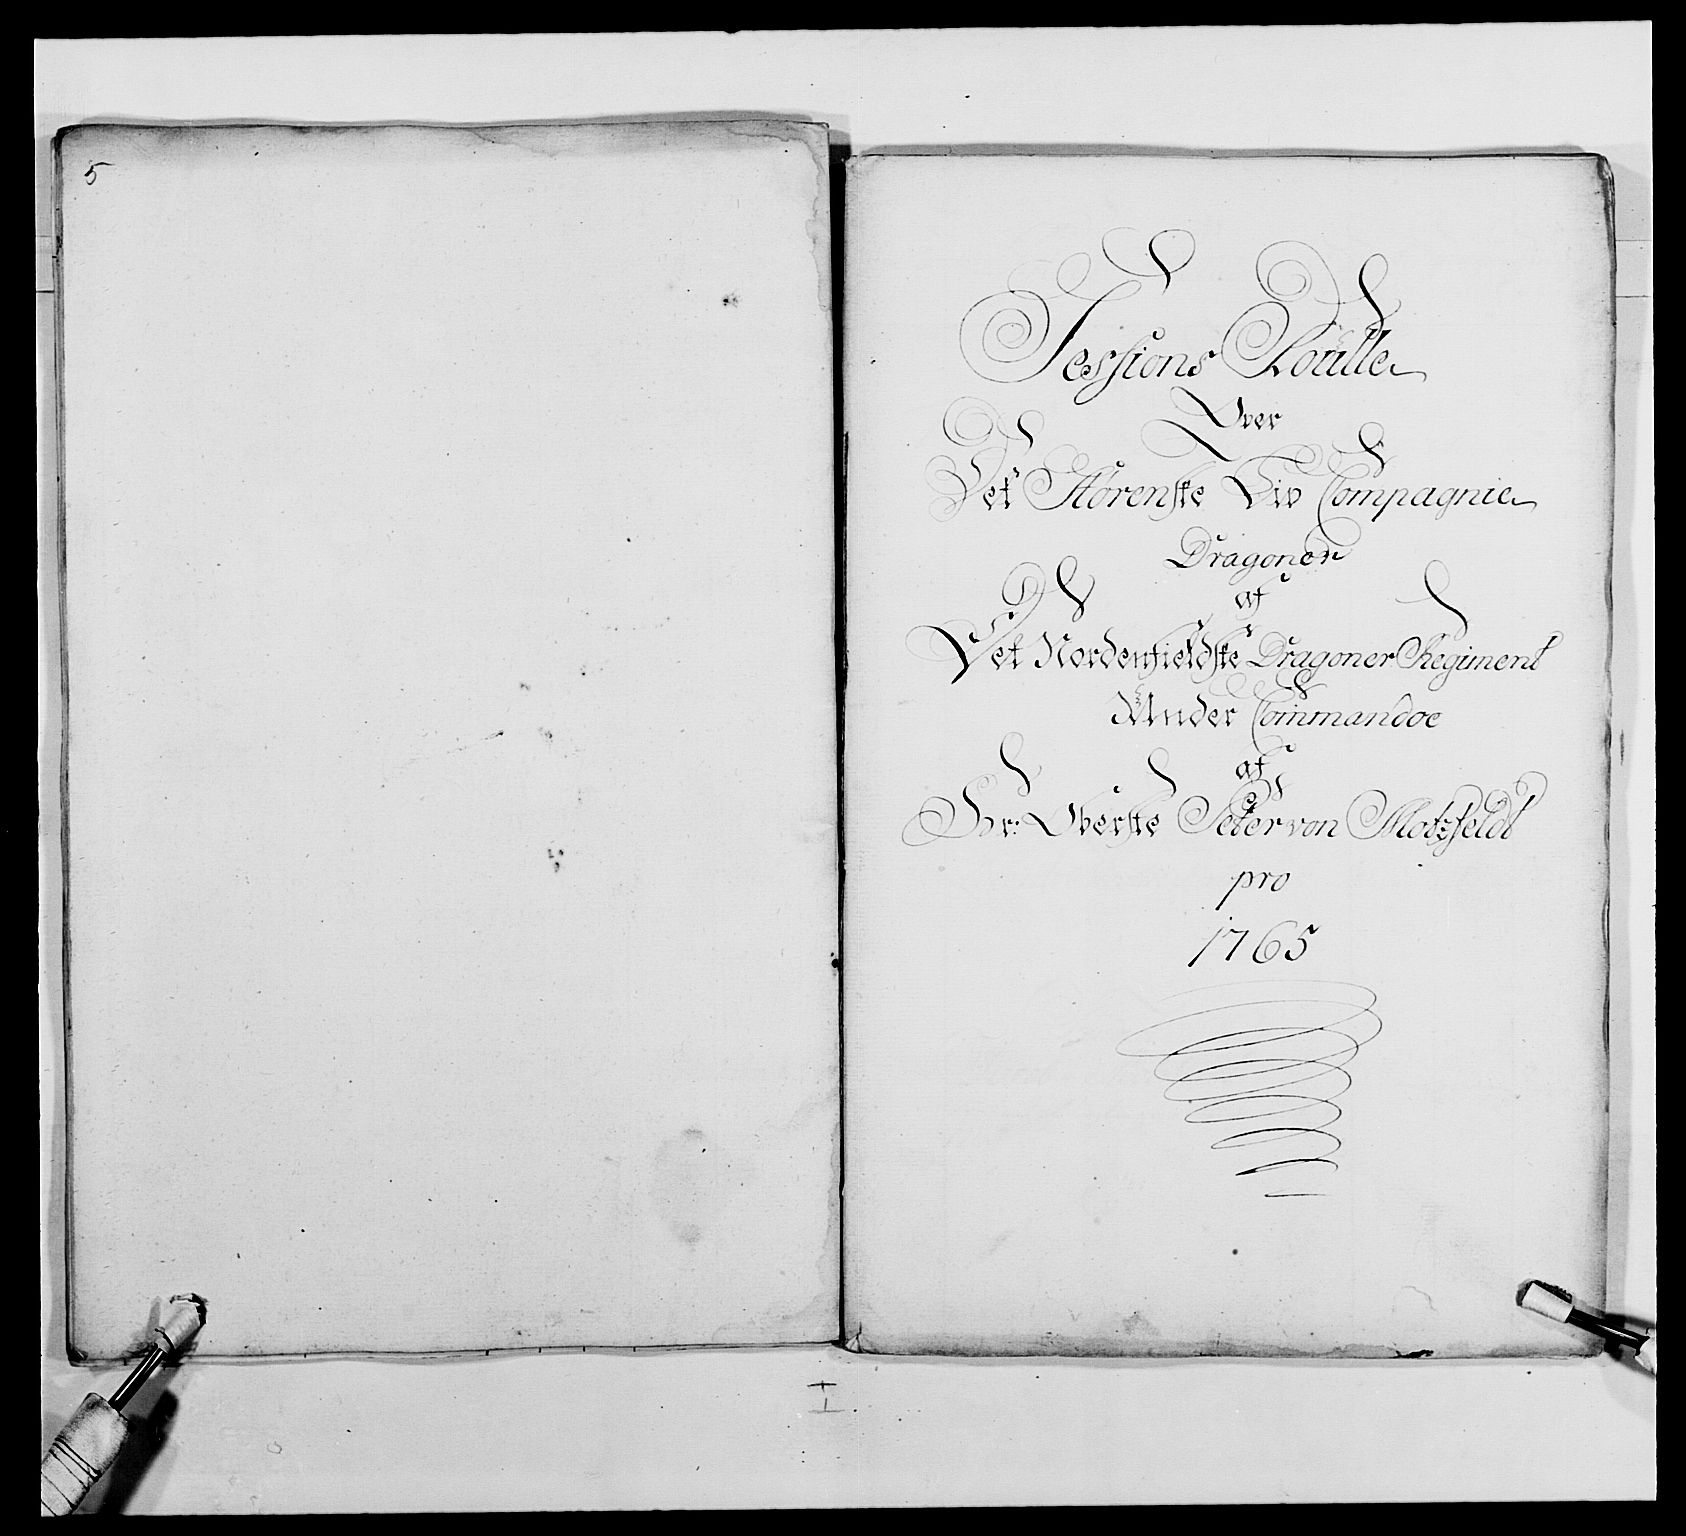 5
Sessions Roulle
Over
Det Størenske Liv Compagnie
Dragoner
af
Det Nordenfieldske Dragoner Regiment
Under Commandoe
af
Hr: Oberste Peter von Motzfeldt
pro
1765